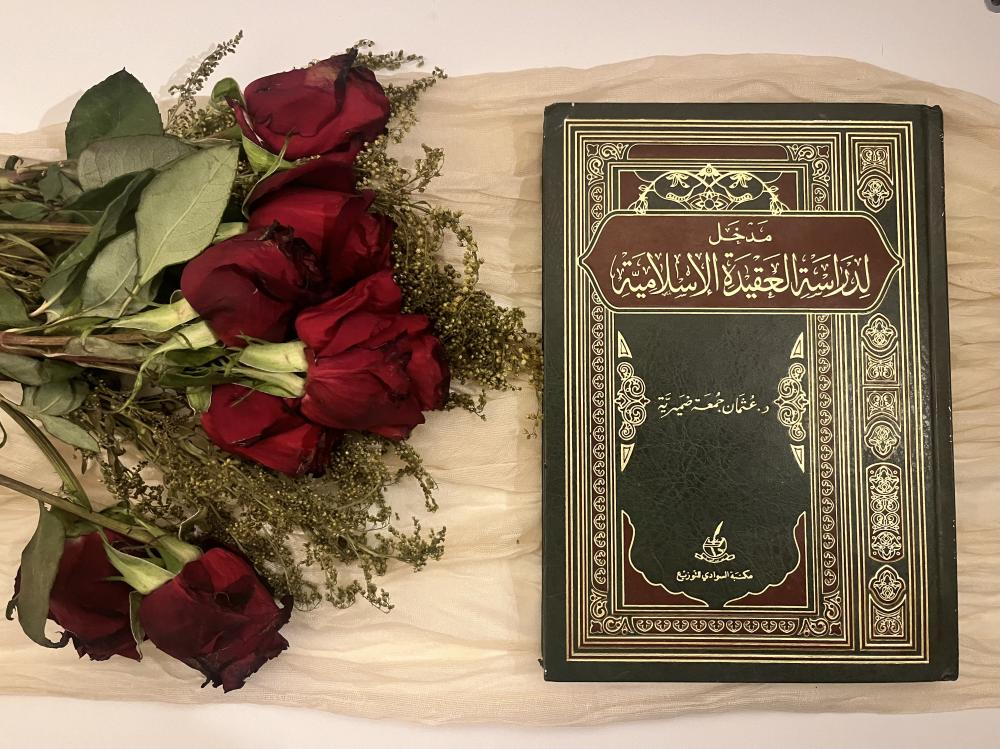 مَدخَل
لِدرَاسَة العَقيدَة الإسْلاميَّة
د. عُثمَان جُمعَة ضَميريَّة
مكتبة السوادي للتوزيع